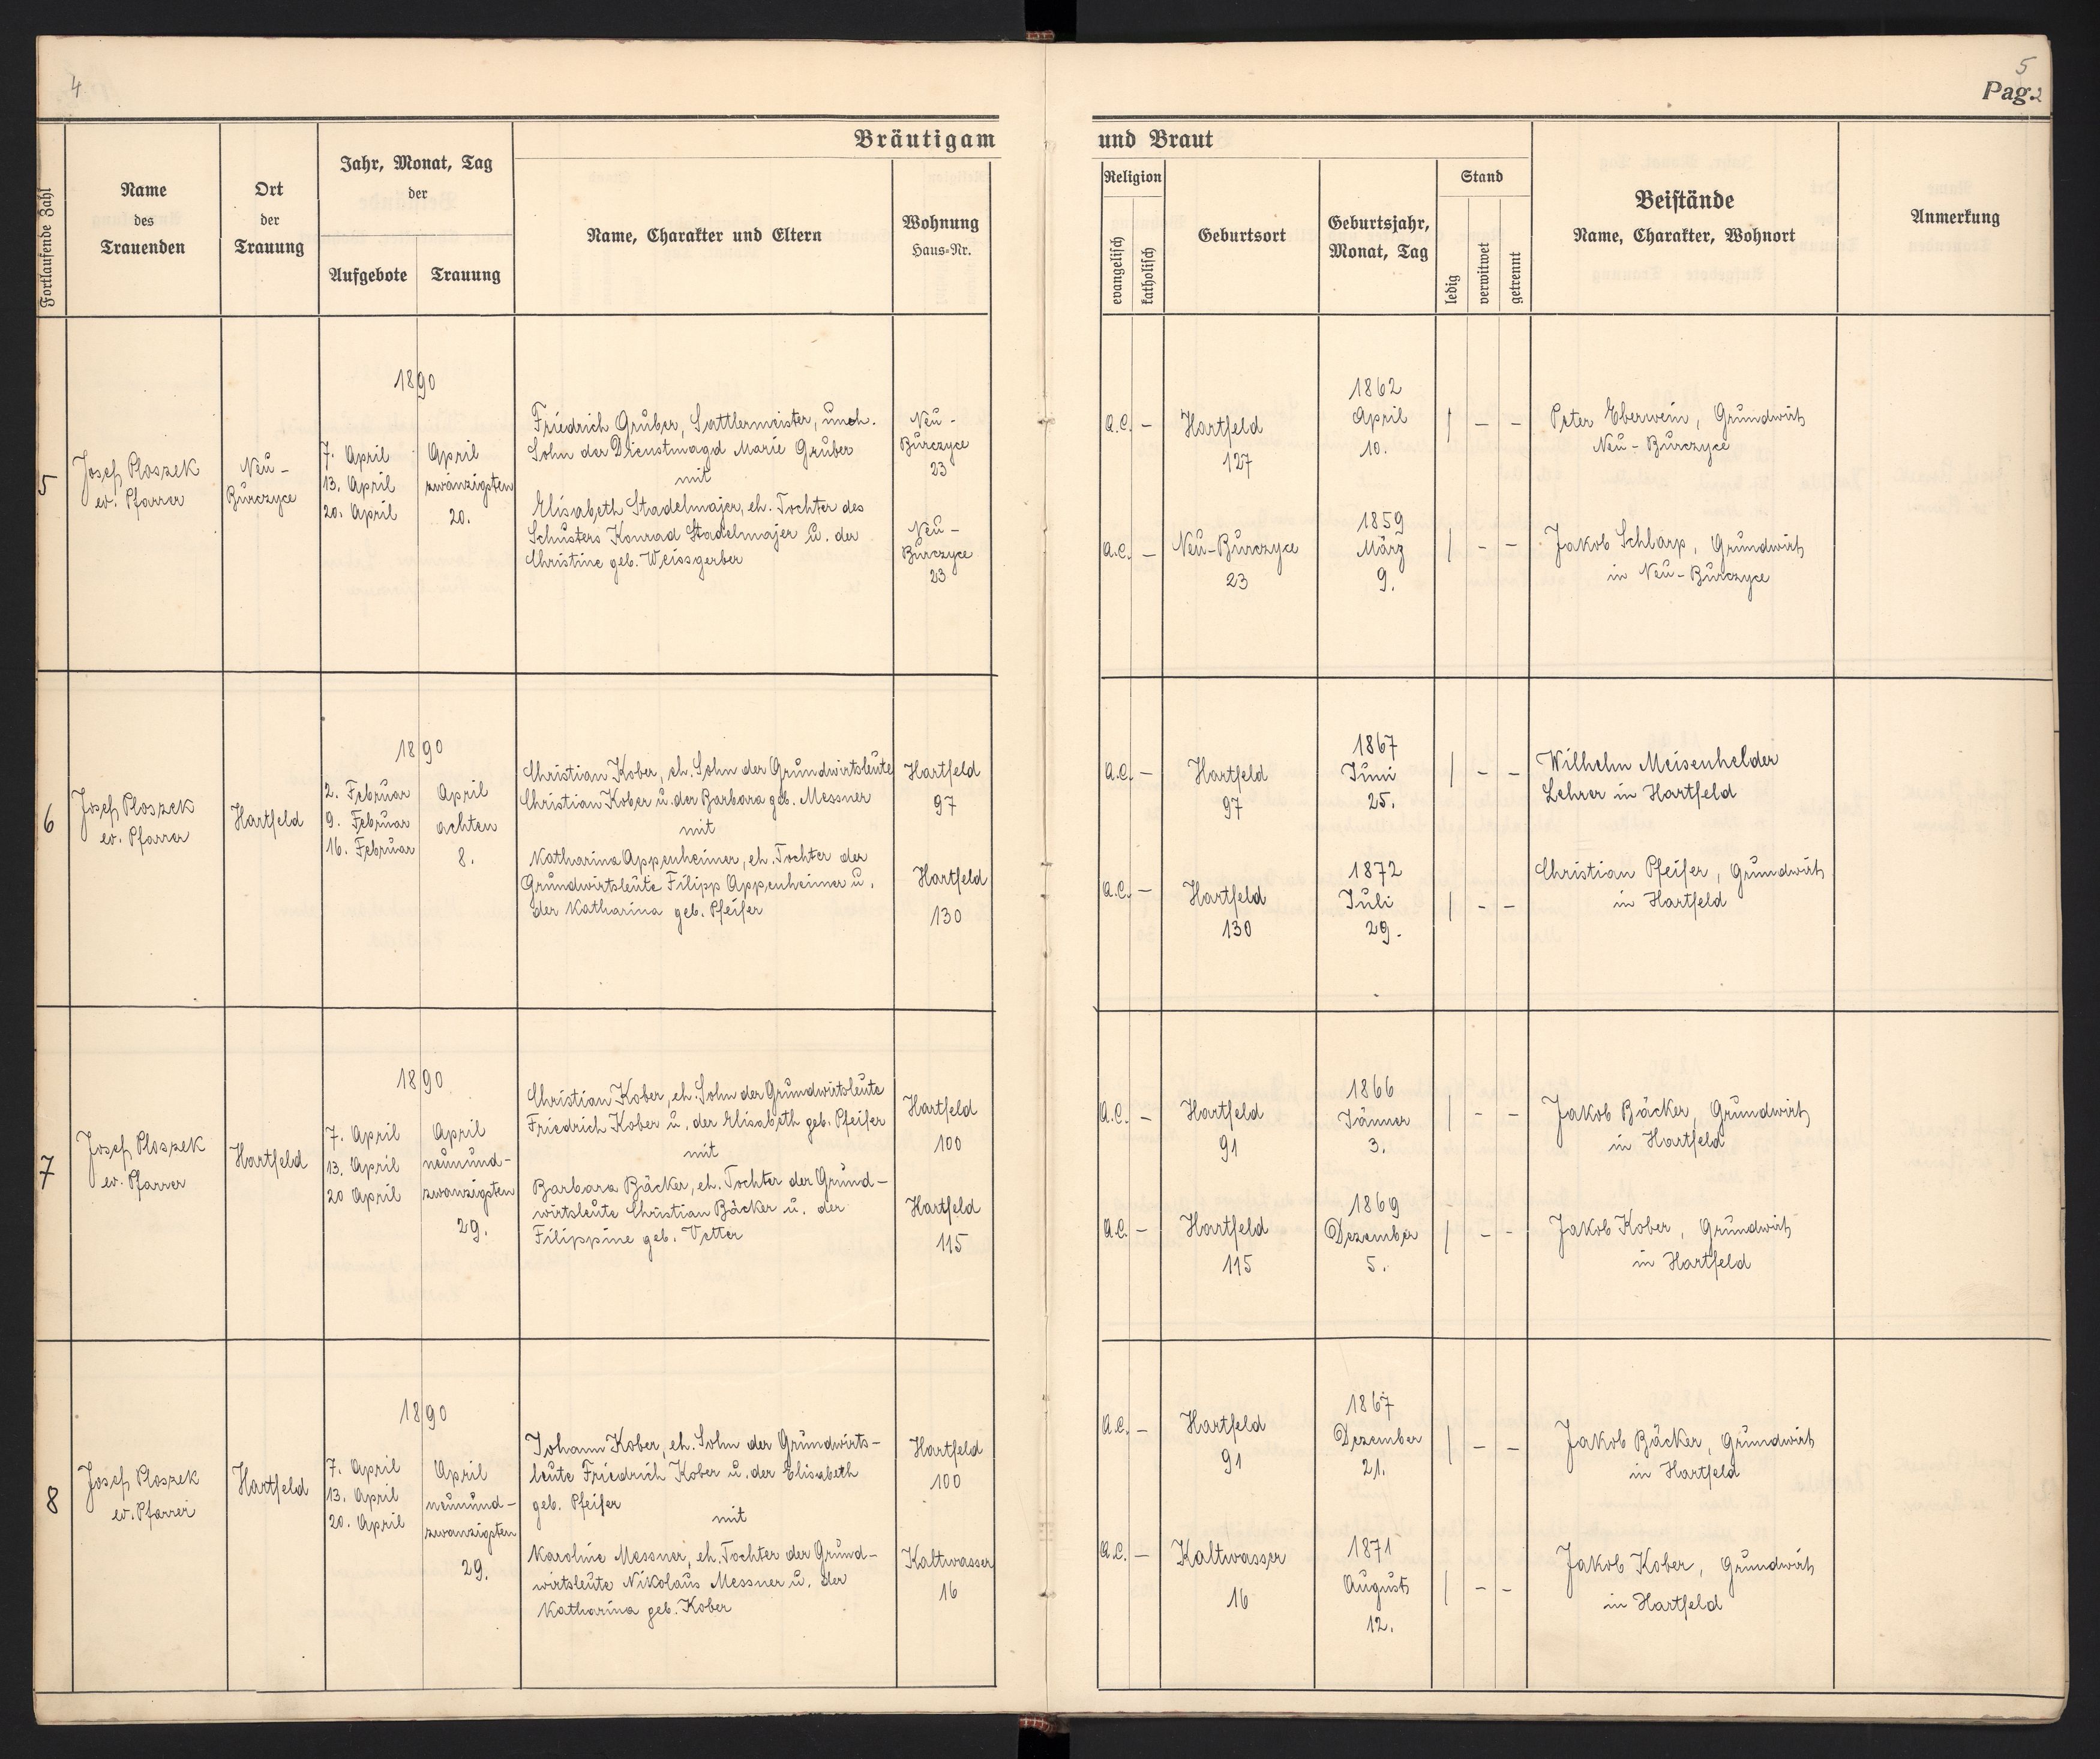 4
5
Pag. 2
Bräutigam
und Braut
Fortlaufende Zahl
Name
des
Trauenden
Ort
der
Trauung
Jahr, Monat, Tag
der
Aufgebote
Trauung
Name, Charakter und Eltern
Wohnung
Haus-Nr.
Religion
evangelisch
katholisch
Geburtsort
Geburtsjahr,
Monat, Tag
Stand
ledig
verwitwet
getrennt
Beistände
Name, Charakter, Wohnort
Anmerkung
5
Josef Ploszek
ev. Pfarrer
Neu-
Burczyce
1890
7. April
13. April
20. April
April
zwanzigsten
20.
Friedrich Gruber, Sattlermeister, uneh.
Sohn der Dienstmagd Marie Gruber
mit
Elisabeth Stadelmajer, eh. Tochter des
Schusters Konrad Stadelmajer u. der
Christine geb. Weissgerber
Neu-
Burczyce
23
Neu-
Burczyce
23
A.C. –
Hartfeld
127
1862
April
10.
/ – –
Peter Eberwein, Grundwirt
Neu-Burczyce
A.C. –
Neu-Burczyce
23
1859
März
9.
/ – –
Jakob Schlarp, Grundwirt
in Neu-Burczyce
6
Josef Ploszek
ev. Pfarrer
Hartfeld
1890
2. Februar
9. Februar
16. Februar
April
achten
8.
Christian Kober, eh. Sohn der Grundwirtsleute
Christian Kober u. der Barbara geb. Messner
mit
Katharina Appenheimer, eh. Tochter der
Grundwirtsleute Filipp Appenheimer u.
der Katharina geb. Pfeifer
Hartfeld
97
Hartfeld
130
A.C. –
Hartfeld
97
1867
Juni
25.
/ – –
Wilhelm Meisenhelder
Lehrer in Hartfeld
A.C. –
Hartfeld
130
1872
Juli
29.
/ – –
Christian Pfeifer, Grundwirt
in Hartfeld
7
Josef Ploszek
ev. Pfarrer
Hartfeld
1890
7. April
13. April
20 April
April
neunund-
zwanzigsten
29.
Christian Kober, eh. Sohn der Grundwirtsleute
Friedrich Kober u. der Elisabeth geb. Pfeifer
mit
Barbara Bäcker, eh. Tochter der Grund-
wirtsleute Christian Bäcker u. der
Filippine geb. Vetter
Hartfeld
100
Hartfeld
115
A.C. –
Hartfeld
91
1866
Jänner
3.
/ – –
Jakob Bäcker, Grundwirt
in Hartfeld
A.C. –
Hartfeld
115
1869
Dezember
5.
/ – –
Jakob Kober, Grundwirt
in Hartfeld
8
Josef Ploszek
ev. Pfarrer
Hartfeld
1890
7. April
13. April
20. April
April
neunund-
zwanzigsten
29.
Johann Kober, eh. Sohn der Grundwirts-
leute Friedrich Kober u. der Elisabeth
geb. Pfeifer
mit
Karoline Messner, eh. Tochter der Grund-
wirtsleute Nikolaus Messner u. der
Katharina geb. Kober
Hartfeld
100
Kaltwasser
16
A.C. –
Hartfeld
91
1867
Dezember
21.
/ – –
Jakob Bäcker, Grundwirt
in Hartfeld
A.C. –
Kaltwasser
16
1871
August
12.
/ – –
Jakob Kober, Grundwirt
in Hartfeld